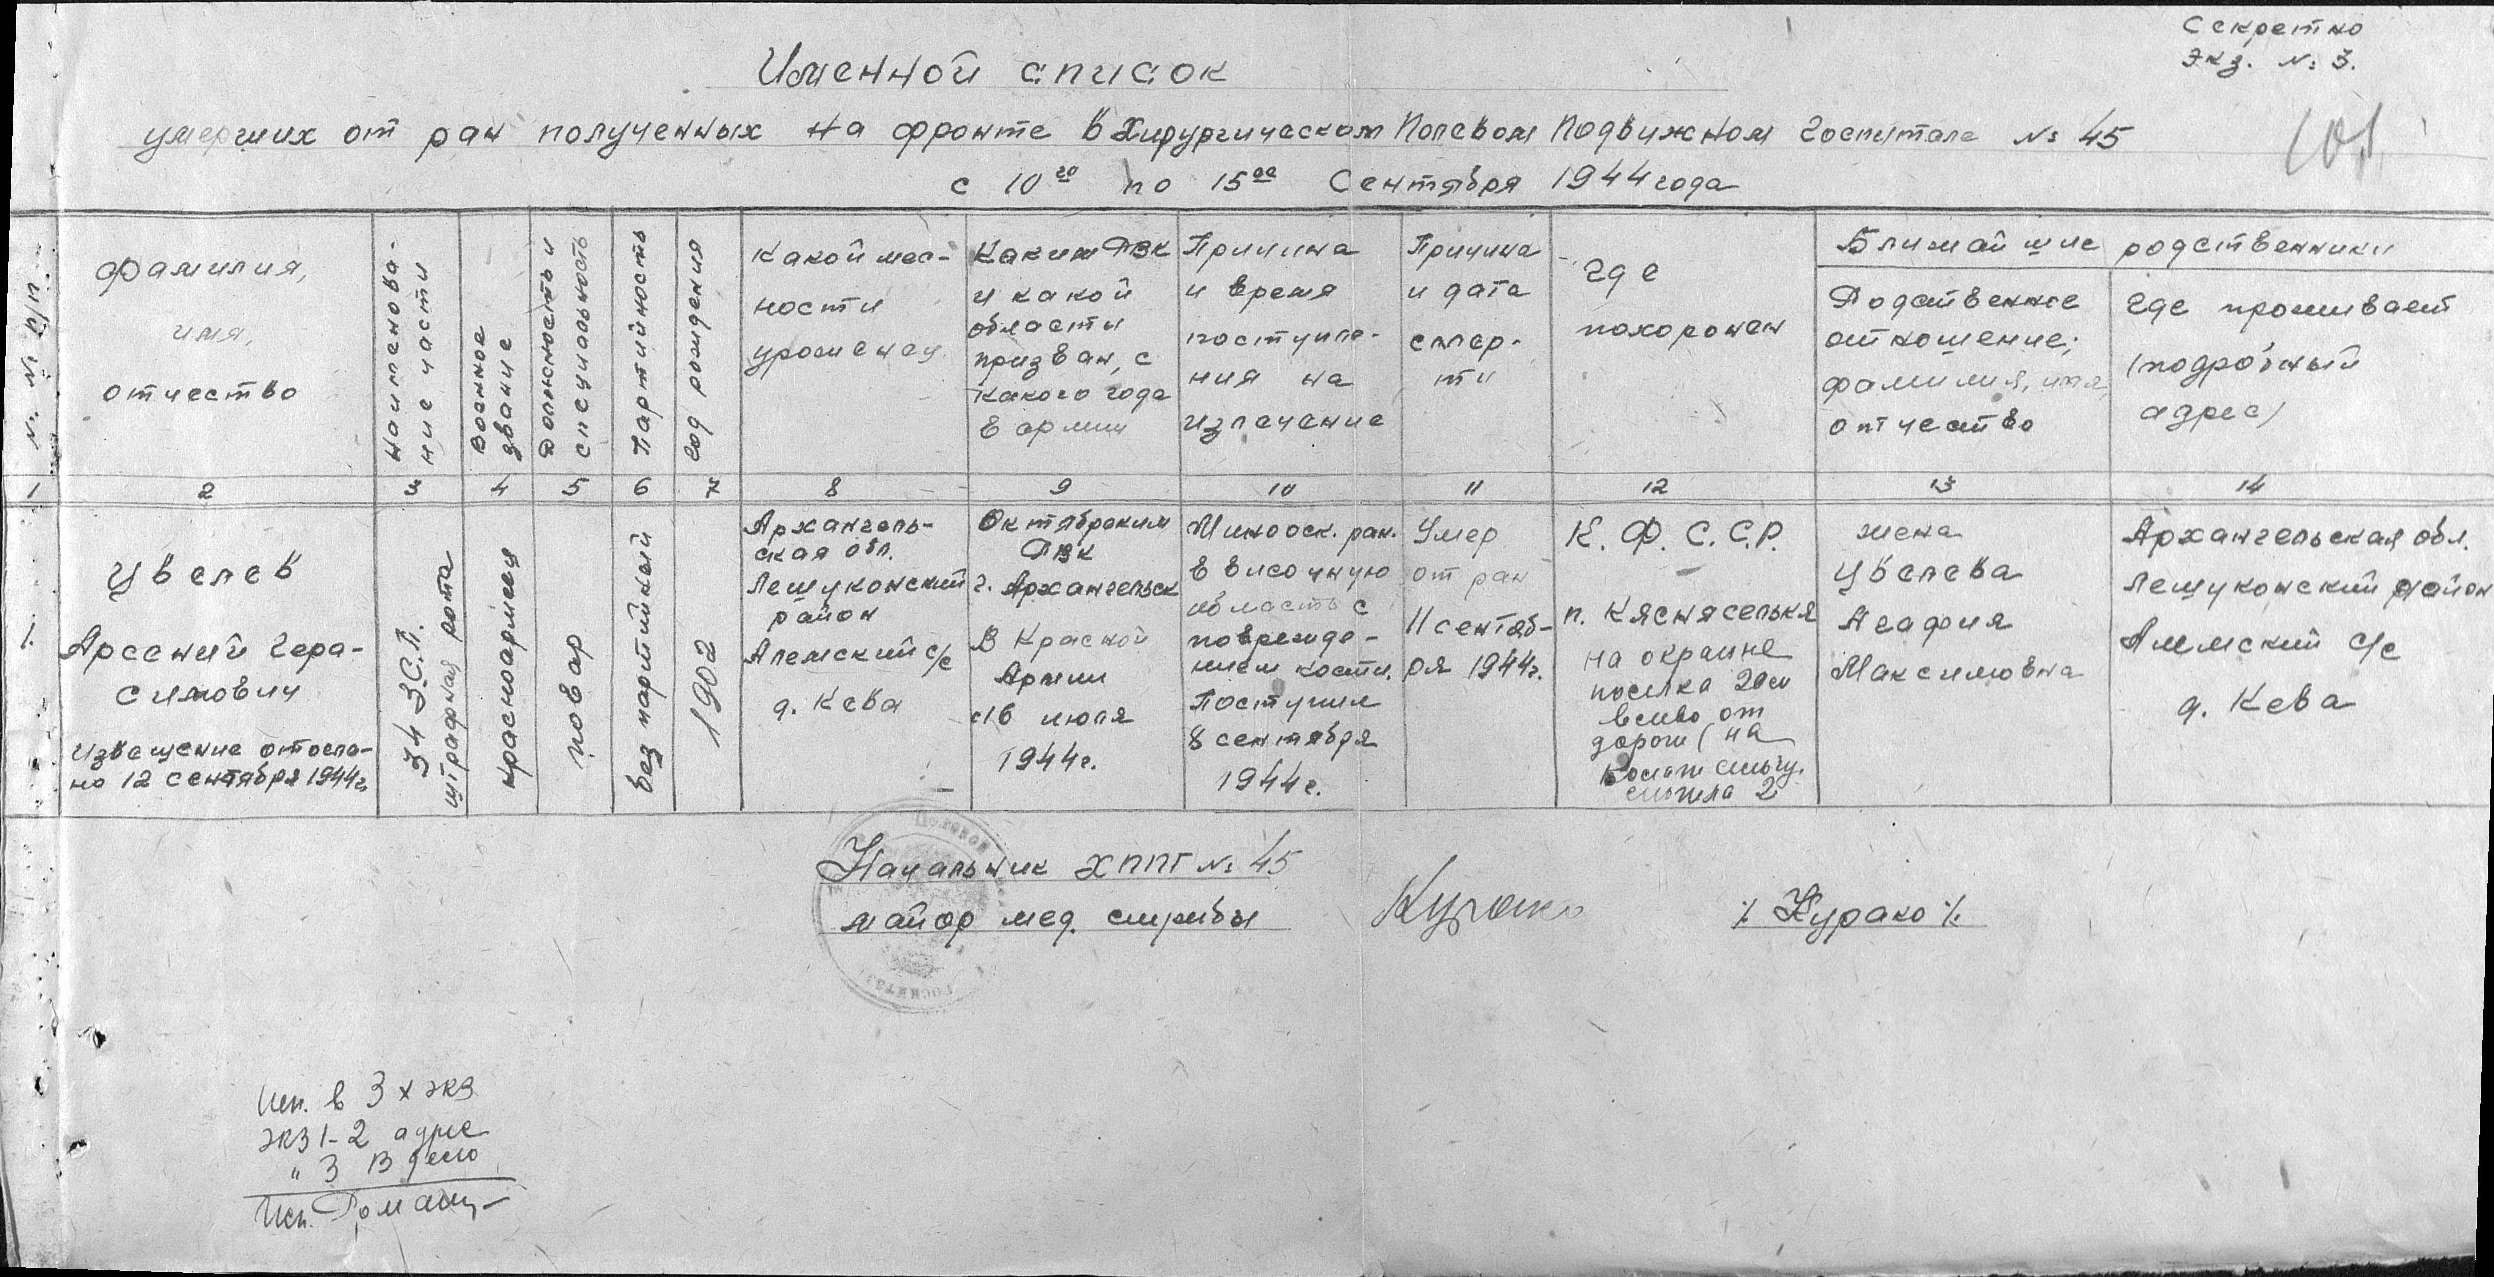 Секретно
Экз. № 3.
Именной список
умерших от ран полученных на фронте в Хирургическом Полевом Подвижном Госпитале № 45
с 10го по 15ое Сентября 1944 года
101
№ № п/п
Фамилия,
имя,
отчество
Наименова-
ние части
Военное
звание
Должность и
специальность
Партийность
Год рождения
Какой мес-
ности
уроженец
Каким РВК
и какой
области
призван, с
какого года
в армии
Причина
и время
поступле-
ния на
излечение
Причина
и дата
смер-
ти
Где
похоронен
Ближайшие родственники
Родственное
отношение;
фамилия, имя,
отчество
Где проживает
(подробный
адрес)
1 2 3 4 5 6 7 8 9 10 11 12 13 14
1.
Цвелев
Арсений Гера-
симович
Извещение отосла-
но 12 сентября 1944г.
34 З.С.П.
штрафная рота
красноармеец
повар
без партийный
1902
Архангель-
ская обл.
Лешуконский
район
Алемский с/с
д. Кева
Октябрским
РВК
г. Архангельск
В Красной
Армии
с 16 июля
1944г.
Минооск. ран.
в височную
область с
поврежде-
нием кости.
Поступил
8 сентября
1944г.
Умер
от ран
11 сентяб-
ря 1944г.
К. Ф. С. С. Р.
п. Кясняселькя
на окраине
поселка 20 м
влево от
дороги (на
могила 2
жена
Цвелева
Агафия
Максимовна
Архангельская обл.
Лешуконский район
с/с
д. Кева
Начальник ХППГ № 45
майор мед. службы
Курако
/. Курако /.
Исп. в 3х экз
экз 1-2 адрес
" 3 в дело
Исп.